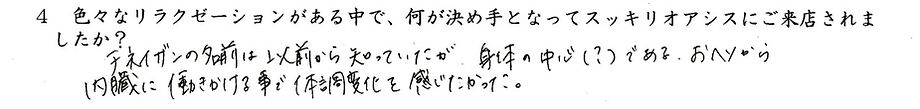 4 色々なリラクゼーションがある中で、何が決め手となってスッキリオアシスにご来店されま
したか？
チネイザンの名前は以前から知っていたが 身体の中心(?)である、おへソから
内臓に働きかける事で体調変化を感じたかった。